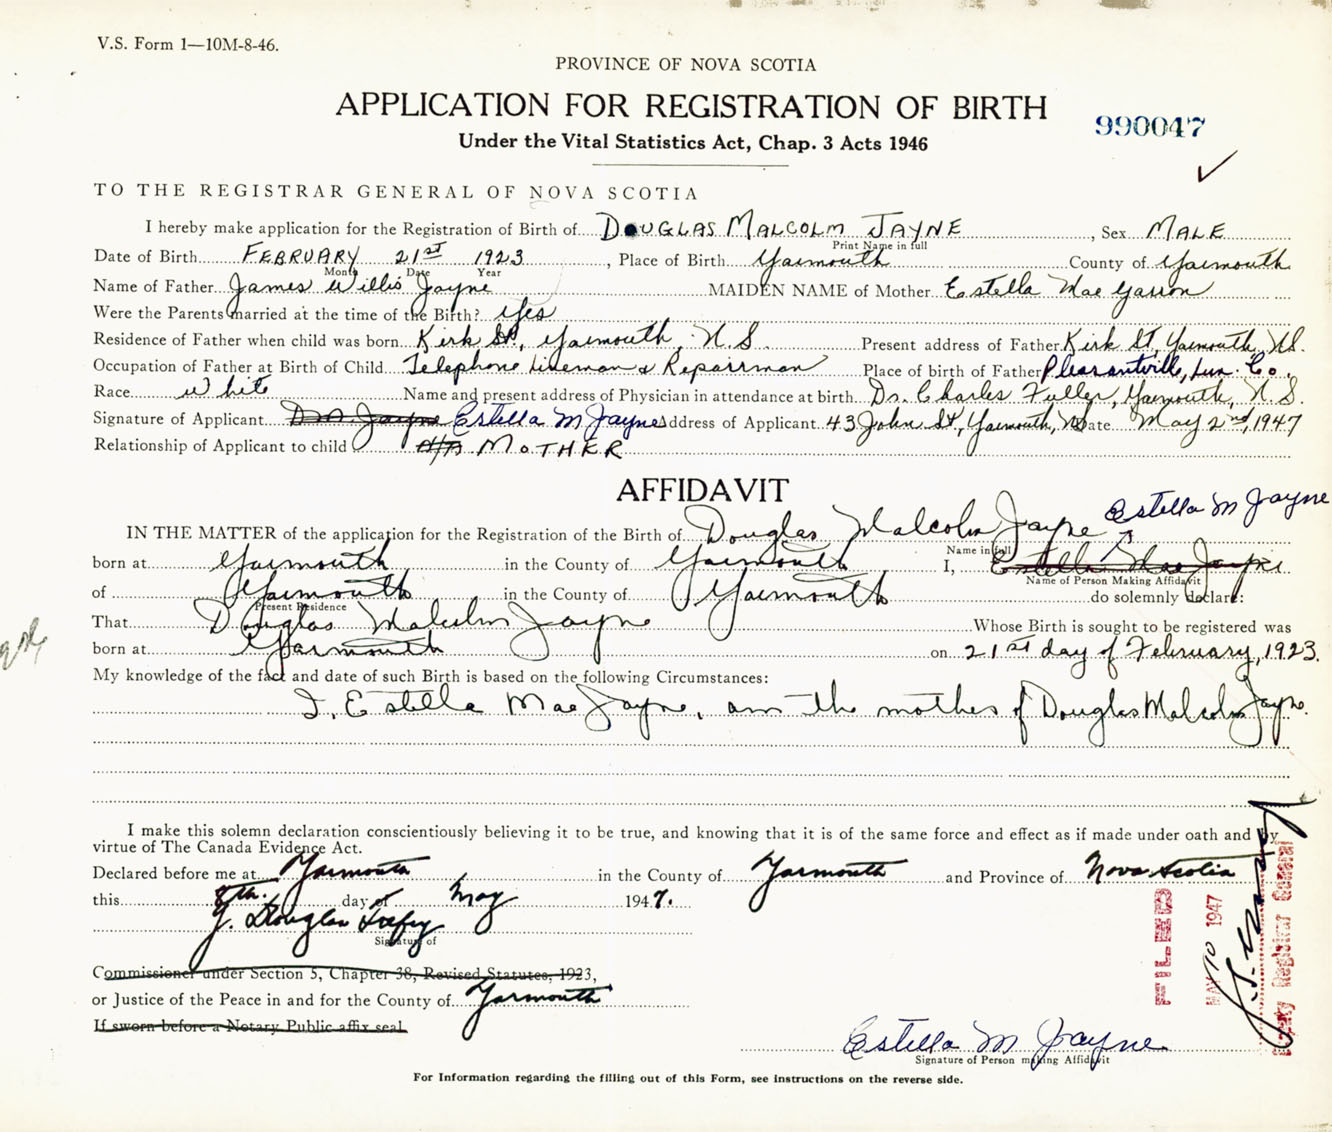 V.S. Form 1—10M-8-46.
PROVINCE OF NOVA SCOTIA
APPLICATION FOR REGISTRATION OF BIRTH
990047
Under the Vital Statistics Act, Chap. 3 Acts 1946
TO THE REGISTRAR GENERAL OF NOVA SCOTIA
I hereby make application for the Registration of Birth of DOUGLAS MALCOLM JAYNE, Sex MALE
Print Name in full
Date of Birth FEBRUARY 21st 1923, Place of Birth Yarmouth County of Yarmouth
Month Date Year
Name of Father James Willis Jayne MAIDEN NAME of Mother Estella Mae
Were the Parents married at the time of the Birth? Yes
Residence of Father when child was born Kirk St, Yarmouth, N.S. Present address of Father Kirk St, Yarmouth, N.S.
Occupation of Father at Birth of Child Telephone Lineman & Repairman Place of birth of Father Pleasantville, Lun. Co.
Race White Name and present address of Physician in attendance at birth Dr. Charles Fuller, Yarmouth, N.S.
Signature of Applicant Jayne Estella M Jayne Address of Applicant 43 John St, Yarmouth, NS Date May 2nd, 1947
Relationship of Applicant to child MOTHER
AFFIDAVIT
Estella M Jayne
IN THE MATTER of the application for the Registration of the Birth of Douglas Malcolm Jayne
Name in full
born at Yarmouth in the County of Yarmouth I, Estella Mae Jayne
Name of Person Making Affidavit
of Yarmouth in the County of Yarmouth do solemnly declare:
Present Residence
That Douglas Malcolm Jayne Whose Birth is sought to be registered was
born at Yarmouth on 21st day of February, 1923.
My knowledge of the fact and date of such Birth is based on the following Circumstances:
I, Estella Mae Jayne, am the mother of Douglas Malcolm Jayne.
I make this solemn declaration conscientiously believing it to be true, and knowing that it is of the same force and effect as if made under oath and by
virtue of The Canada Evidence Act.
Declared before me at Yarmouth in the County of Yarmouth and Province of Nova Scotia
this 8th. day of May 1947.
Douglas
Signature of
Commissioner under Section 5, Chapter 38, Revised Statutes, 1923,
or Justice of the Peace in and for the County of Yarmouth
If sworn before a Notary Public affix seal
FILED
MAY 10 1947
Deputy Registrar General
Estella M Jayne
Signature of Person making Affidavit
For Information regarding the filling out of this Form, see instructions on the reverse side.